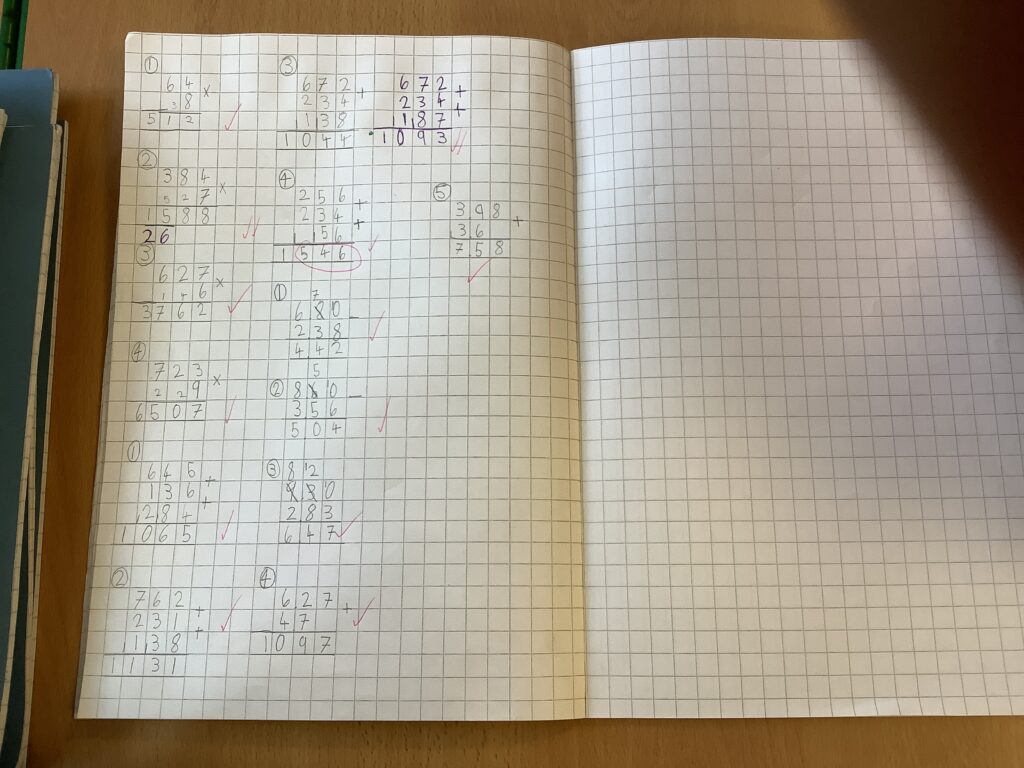 ①
64 ×
38
512
②
384 ×
527
1588
26
③
627 ×
146
3762
④
723 ×
229
6507
①
645 +
136 +
284
1065
②
762 +
231 +
138
1131
③
672 +
234
138
1044
672 +
234 +
187
1093
④
256 +
234 +
56
1546
①
7
680 -
238
442
5
② 860 -
356
504
③ 8 12
930
283
647
④
627 +
47
1097
⑤
398 +
36
758